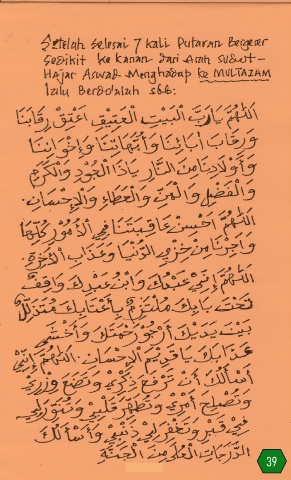 Setelah Selesai 7 kali Putaran Bergeser
Sedikit ke kanan dari Arah Sudut-
Hajar Aswad Menghadap ke MULTAZAM
lalu Berdo'alah sbb:
اَللّٰهُمَّ يَارَبَّ الْبَيْتِ الْعَتِيْقِ اَعْتِقْ رِقَابَنَا
وَرِقَابَ اٰبَائِنَا وَاُمَّهَاتِنَا وَاِخْوَانِنَا
وَاَوْلَادِنَا مِنَ النَّارِ يَاذَا الْجُوْدِ وَالْكَرَمِ
وَالْفَضْلِ وَالْمَنِّ وَالْعَطَاءِ وَالْاِحْسَانِ.
اَللّٰهُمَّ اَحْسِنْ عَاقِبَتَنَا فِى الْاُمُوْرِ كُلِّهَا
وَاَجِرْنَا مِنْ خِزْيِ الدُّنْيَا وَعَذَابِ الْاٰخِرَةِ.
اَللّٰهُمَّ اِنِّيْ عَبْدُكَ وَابْنُ عَبْدِكَ وَاقِفٌ
تَحْتَ بَابِكَ مُلْتَزِمٌ بِاَعْتَابِكَ مُتَذَلِّلٌ
بَيْنَ يَدَيْكَ اَرْجُوْ رَحْمَتَكَ وَاَخْشٰى
عَذَابَكَ يَا قَدِيْمَ الْاِحْسَانِ. اَللّٰهُمَّ اِنِّيْ
اَسْأَلُكَ اَنْ تَرْفَعَ ذِكْرِيْ وَتَضَعَ وِزْرِيْ
وَتُصْلِحَ اَمْرِيْ وَتُطَهِّرَ قَلْبِيْ وَتُنَوِّرَ لِيْ
فِيْ قَبْرِيْ وَتَغْفِرَ لِيْ ذَنْبِيْ وَاَسْأَلُكَ
الدَّرَجَاتِ الْعُلٰى مِنَ الْجَنَّةِ
39